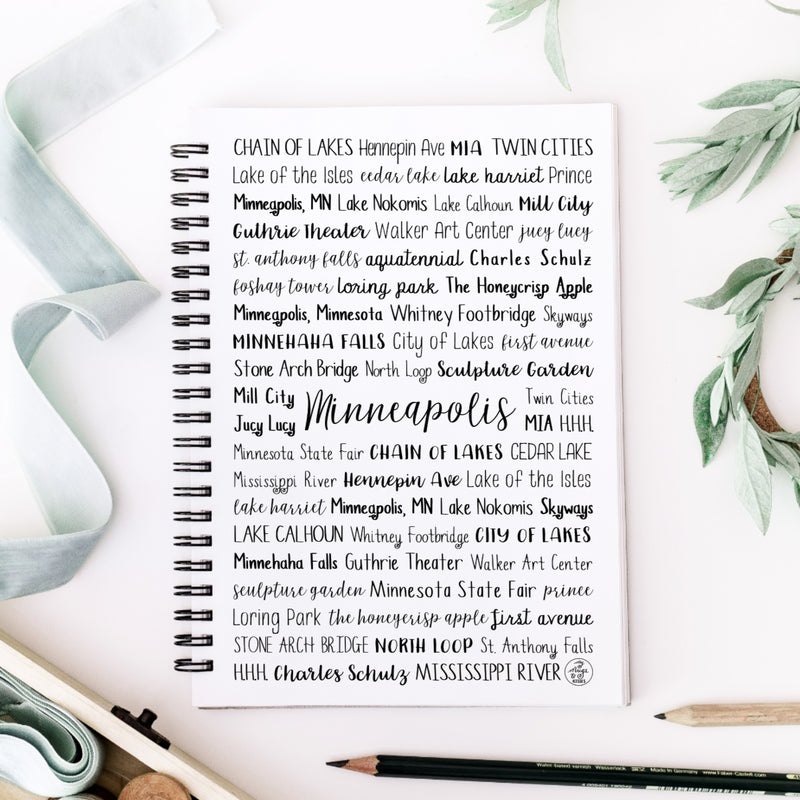 CHAIN OF LAKES Hennepin Ave MIA TWIN CITIES
Lake of the Isles cedar lake lake harriet Prince
Minneapolis, MN Lake Nokomis Lake Calhoun Mill City
Guthrie Theater Walker Art Center jucy lucy
st. anthony falls aquatennial Charles Schulz
foshay tower loring park The Honeycrisp Apple
Minneapolis, Minnesota Whitney Footbridge Skyways
MINNEHAHA FALLS City of Lakes first avenue
Stone Arch Bridge North Loop Sculpture Garden
Mill City Minneapolis Twin Cities
Jucy Lucy MIA H.H.H.
Minnesota State Fair CHAIN OF LAKES CEDAR LAKE
Mississippi River Hennepin Ave Lake of the Isles
lake harriet Minneapolis, MN Lake Nokomis Skyways
LAKE CALHOUN Whitney Footbridge CITY OF LAKES
Minnehaha Falls Guthrie Theater Walker Art Center
sculpture garden Minnesota State Fair prince
Loring Park the honeycrisp apple first avenue
STONE ARCH BRIDGE NORTH LOOP St. Anthony Falls
H.H.H. Charles Schulz MISSISSIPPI RIVER
Made in Germany www.Faber-Castell.com